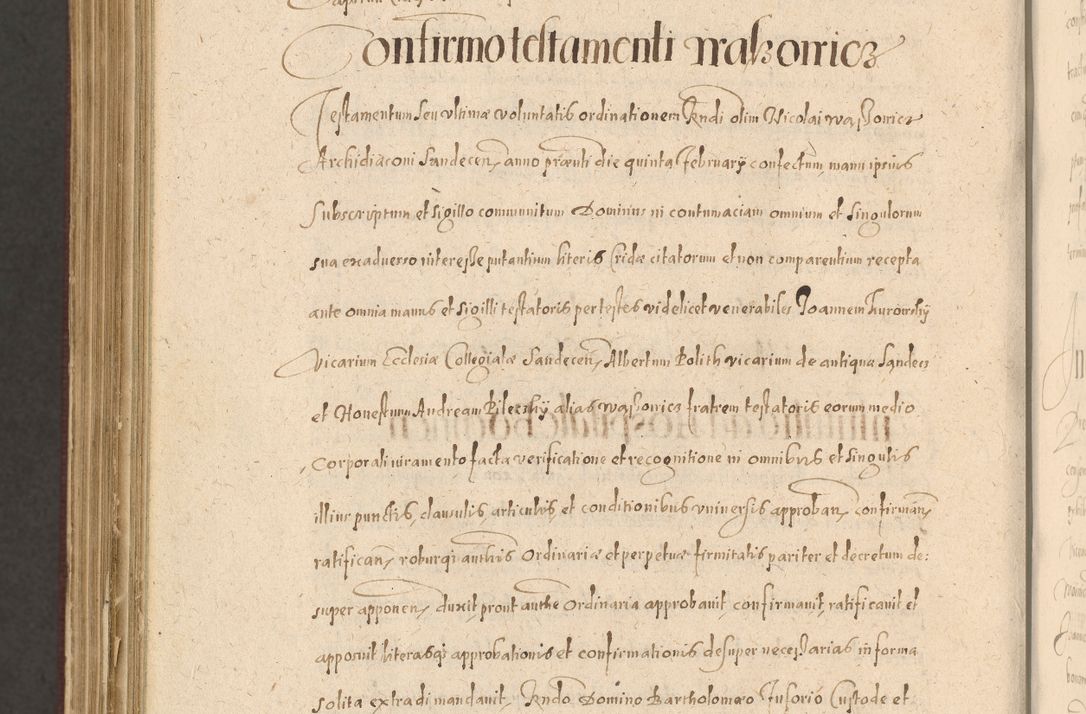 Confirmo testamenti Waſzowicz
Testamentum seu ultimæ voluntatis ordinationem Rndi olim Nicolai Waſzowicz
Archidiaconi Sandecen, anno præsnti die quinta february confectum, manu ipsius
Subscriptum et Sigillo communitum Dominus in contumaciam omnium et singulorum
sua ex adverso interesse putantium literis Cridæ citatorum et non comparentium recepta
ante omnia manus et Sigilli testatoris per testes videlicet venerabiles Joannem Turowsky
Vicarium Ecclesiæ Collegiatæ Sandecen, Albertum Bolith vicarium de antiqua Sandecz
et Honestum Andream Pileczky alias Waſzowicz fratrem testatoris eorum medio
Corporali iuramento facta verificatione et recognitione in omnibus et Singulis
illius punctis, clausulis, articulis, et conditionibus universis approban, confirman,
ratifican, roburq; authtis Ordinariæ et perpetuæ firmitatis pariter et decretum de:
super apponen, duxit prout authe Ordinaria approbavit confirmavit, ratificavit et
apposuit literasq; approbationis et confirmationis desuper necessarias in forma
solita extradi mandavit, Rndo Domino Bartholomæo Fusorio Custode et